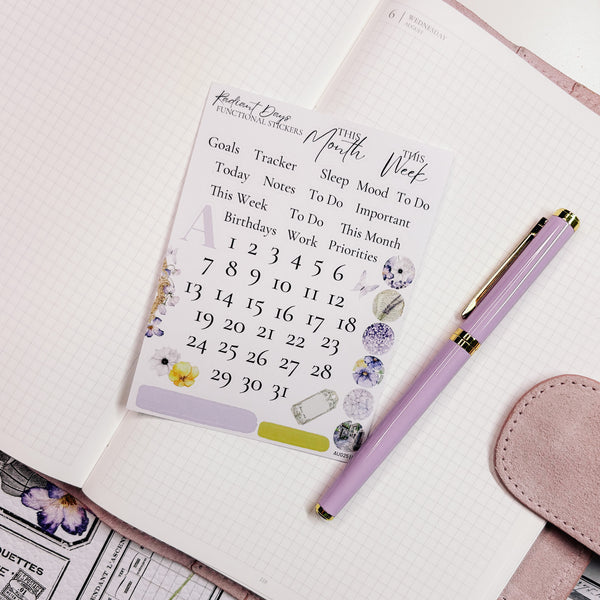 6 WEDNESDAY
AUGUST
Radiant Days
FUNCTIONAL STICKERS
THIS
Month
THIS
Week
Goals Tracker Sleep Mood To Do
Today Notes To Do Important
This Week To Do This Month
Birthdays Work Priorities
A
1 2 3 4 5 6
7 8 9 10 11 12
13 14 15 16 17 18
19 20 21 22 23
24 25 26 27 28
29 30 31